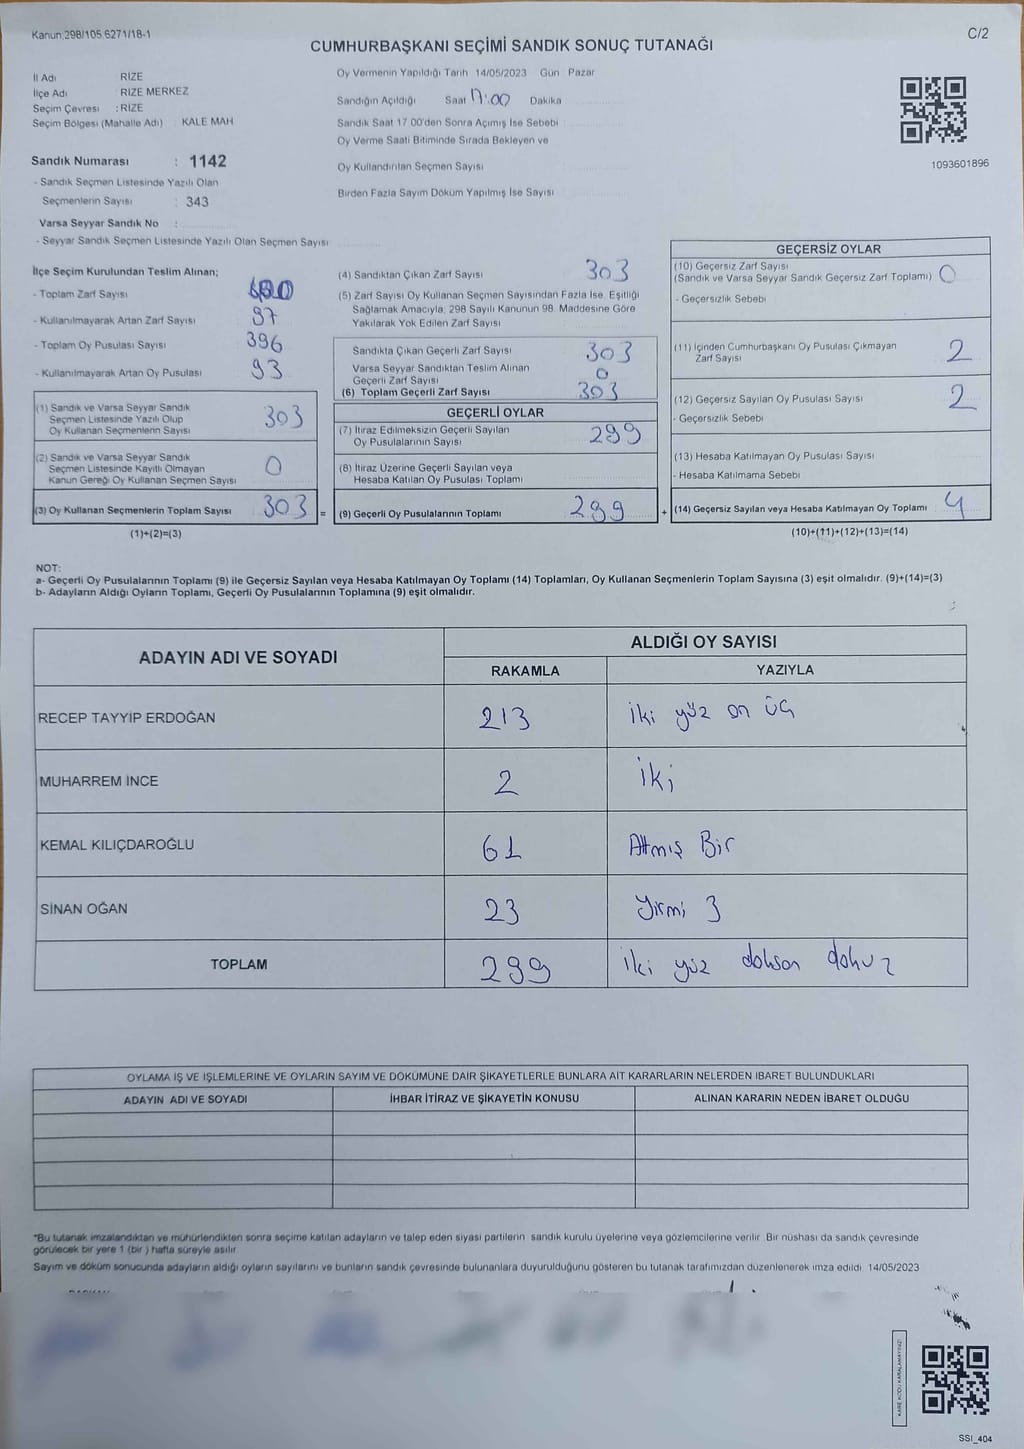 Kanun;298/105 6271/18-1
C/2
CUMHURBAŞKANI SEÇİMİ SANDIK SONUÇ TUTANAĞI
İl Adı RİZE
İlçe Adı RİZE MERKEZ
Seçim Çevresi : RİZE
Seçim Bölgesi (Mahalle Adı) KALE MAH
Oy Vermenin Yapıldığı Tarih 14/05/2023 Gün Pazar
Sandığın Açıldığı Saat 17:00 Dakika
Sandık Saat 17 00'den Sonra Açımış İse Sebebi
Oy Verme Saati Bitiminde Sırada Bekleyen ve
Oy Kullandırılan Seçmen Sayısı
Birden Fazla Sayım Döküm Yapılmış İse Sayısı
1093601896
Sandık Numarası : 1142
- Sandık Seçmen Listesinde Yazılı Olan
Seçmenlerin Sayısı : 343
Varsa Seyyar Sandık No :
- Seyyar Sandık Seçmen Listesinde Yazılı Olan Seçmen Sayısı
İlçe Seçim Kurulundan Teslim Alınan;
- Toplam Zarf Sayısı
- Kullanılmayarak Artan Zarf Sayısı 97
- Toplam Oy Pusulası Sayısı 396
- Kullanılmayarak Artan Oy Pusulası 93
(1) Sandık ve Varsa Seyyar Sandık
Seçmen Listesinde Yazılı Olup
Oy Kullanan Seçmenlerin Sayısı 303
(2) Sandık ve Varsa Seyyar Sandık
Seçmen Listesinde Kayıtlı Olmayan
Kanun Gereği Oy Kullanan Seçmen Sayısı 0
(3) Oy Kullanan Seçmenlerin Toplam Sayısı 303 =
(1)+(2)=(3)
(4) Sandıktan Çıkan Zarf Sayısı 303
(5) Zarf Sayısı Oy Kullanan Seçmen Sayısından Fazla İse, Eşitliği
Sağlamak Amacıyla; 298 Sayılı Kanunun 98. Maddesine Göre
Yakılarak Yok Edilen Zarf Sayısı
Sandıkta Çıkan Geçerli Zarf Sayısı 303
Varsa Seyyar Sandıktan Teslim Alınan
Geçerli Zarf Sayısı 0
(6) Toplam Geçerli Zarf Sayısı 303
GEÇERLİ OYLAR
(7) İtiraz Edilmeksizin Geçerli Sayılan
Oy Pusulalarının Sayısı 299
(8) İtiraz Üzerine Geçerli Sayılan veya
Hesaba Katılan Oy Pusulası Toplamı
(9) Geçerli Oy Pusulalarının Toplamı 299 +
GEÇERSİZ OYLAR
(10) Geçersiz Zarf Sayısı
(Sandık ve Varsa Seyyar Sandık Geçersiz Zarf Toplamı) 0
- Geçersizlik Sebebi
(11) İçinden Cumhurbaşkanı Oy Pusulası Çıkmayan
Zarf Sayısı 2
(12) Geçersiz Sayılan Oy Pusulası Sayısı 2
- Geçersizlik Sebebi
(13) Hesaba Katılmayan Oy Pusulası Sayısı
- Hesaba Katılmama Sebebi
(14) Geçersiz Sayılan veya Hesaba Katılmayan Oy Toplamı 4
(10)+(11)+(12)+(13)=(14)
NOT:
a- Geçerli Oy Pusulalarının Toplamı (9) ile Geçersiz Sayılan veya Hesaba Katılmayan Oy Toplamı (14) Toplamları, Oy Kullanan Seçmenlerin Toplam Sayısına (3) eşit olmalıdır. (9)+(14)=(3)
b- Adayların Aldığı Oyların Toplamı, Geçerli Oy Pusulalarının Toplamına (9) eşit olmalıdır.
ADAYIN ADI VE SOYADI
ALDIĞI OY SAYISI
RAKAMLA YAZIYLA
RECEP TAYYİP ERDOĞAN 213 iki yüz on üç
MUHARREM İNCE 2 iki
KEMAL KILIÇDAROĞLU 61 Altmış Bir
SİNAN OĞAN 23 Yirmi 3
TOPLAM 299 iki yüz doksan dokuz
OYLAMA İŞ VE İŞLEMLERİNE VE OYLARIN SAYIM VE DÖKÜMÜNE DAİR ŞİKAYETLERLE BUNLARA AİT KARARLARIN NELERDEN İBARET BULUNDUKLARI
ADAYIN ADI VE SOYADI İHBAR İTİRAZ VE ŞİKAYETİN KONUSU ALINAN KARARIN NEDEN İBARET OLDUĞU
*Bu tutanak imzalandıktan ve mühürlendikten sonra seçime katılan adayların ve talep eden siyasi partilerin sandık kurulu üyelerine veya gözlemcilerine verilir. Bir nüshası da sandık çevresinde
görülecek bir yere 1 (bir ) hafta süreyle asılır.
Sayım ve döküm sonucunda adayların aldığı oyların sayılarını ve bunların sandık çevresinde bulunanlara duyurulduğunu gösteren bu tutanak tarafımızdan düzenlenerek imza edildi. 14/05/2023
KARE KODU KARALAMAYINIZ!
SSI_404